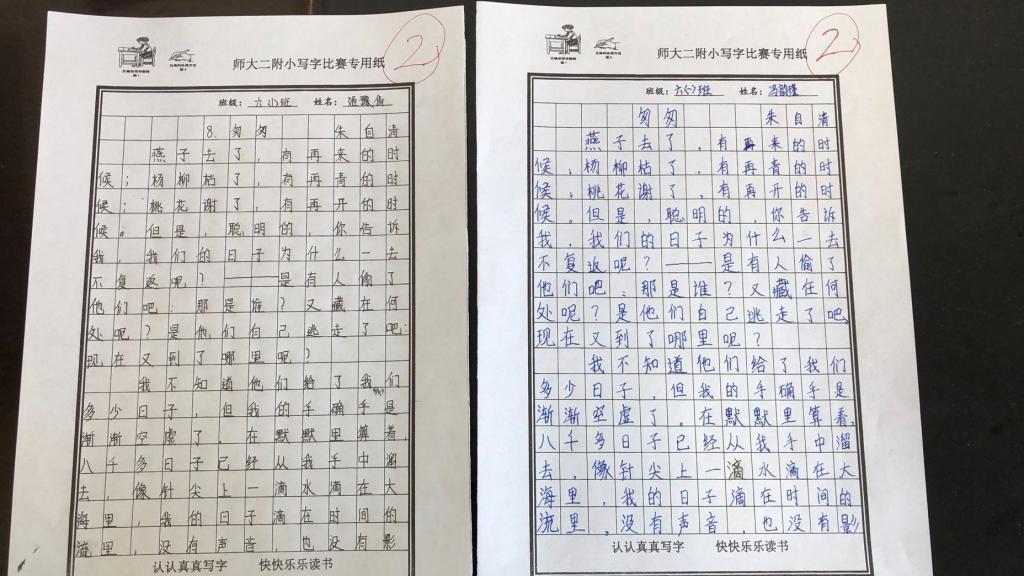 2
师大二附小写字比赛专用纸
班级：六(3)班 姓名：
8. 匆匆 朱自清
燕子去了，有再来的时
候；杨柳枯了，有再青的时
候；桃花谢了，有再开的时
候。但是，聪明的，你告诉
我，我们的日子为什么一去
不复返呢？——是有人偷了
他们吧：那是谁？又藏在何
处呢？是他们自己逃走了吧：
现在又到了哪里呢？
我不知道他们给了我们
多少日子，但我的手确乎是
渐渐空虚了。在默默里算着，
八千多日子已经从我手中溜
去，像针尖上一滴水滴在大
海里，我的日子滴在时间的
流里，没有声音，也没有影
认认真真写字 快快乐乐读书
2
师大二附小写字比赛专用纸
班级：六(2)班 姓名：
匆匆 朱自清
燕子去了，有再来的时
候；杨柳枯了，有再青的时
候；桃花谢了，有再开的时
候。但是，聪明的，你告诉
我，我们的日子为什么一去
不复返呢？——是有人偷了
他们吧：那是谁？又藏在何
处呢？是他们自己逃走了吧：
现在又到了哪里呢？
我不知道他们给了我们
多少日子，但我的手确乎是
渐渐空虚了。在默默里算着，
八千多日子已经从我手中溜
去，像针尖上一滴水滴在大
海里，我的日子滴在时间的
流里，没有声音，也没有影
认认真真写字 快快乐乐读书